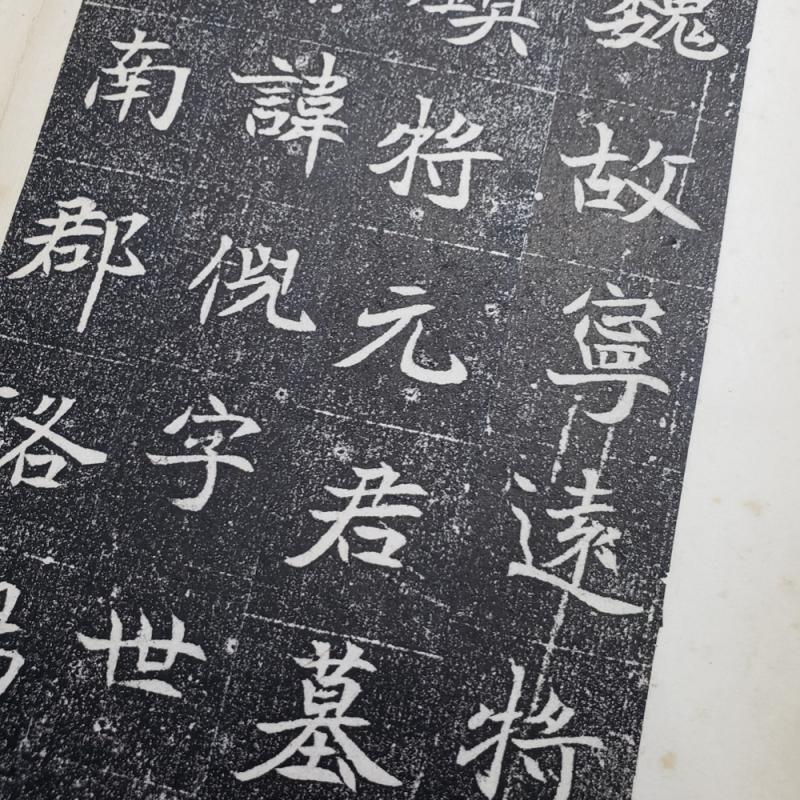 魏故寧遠将
鎮将元君墓
諱倪字世
南郡洛